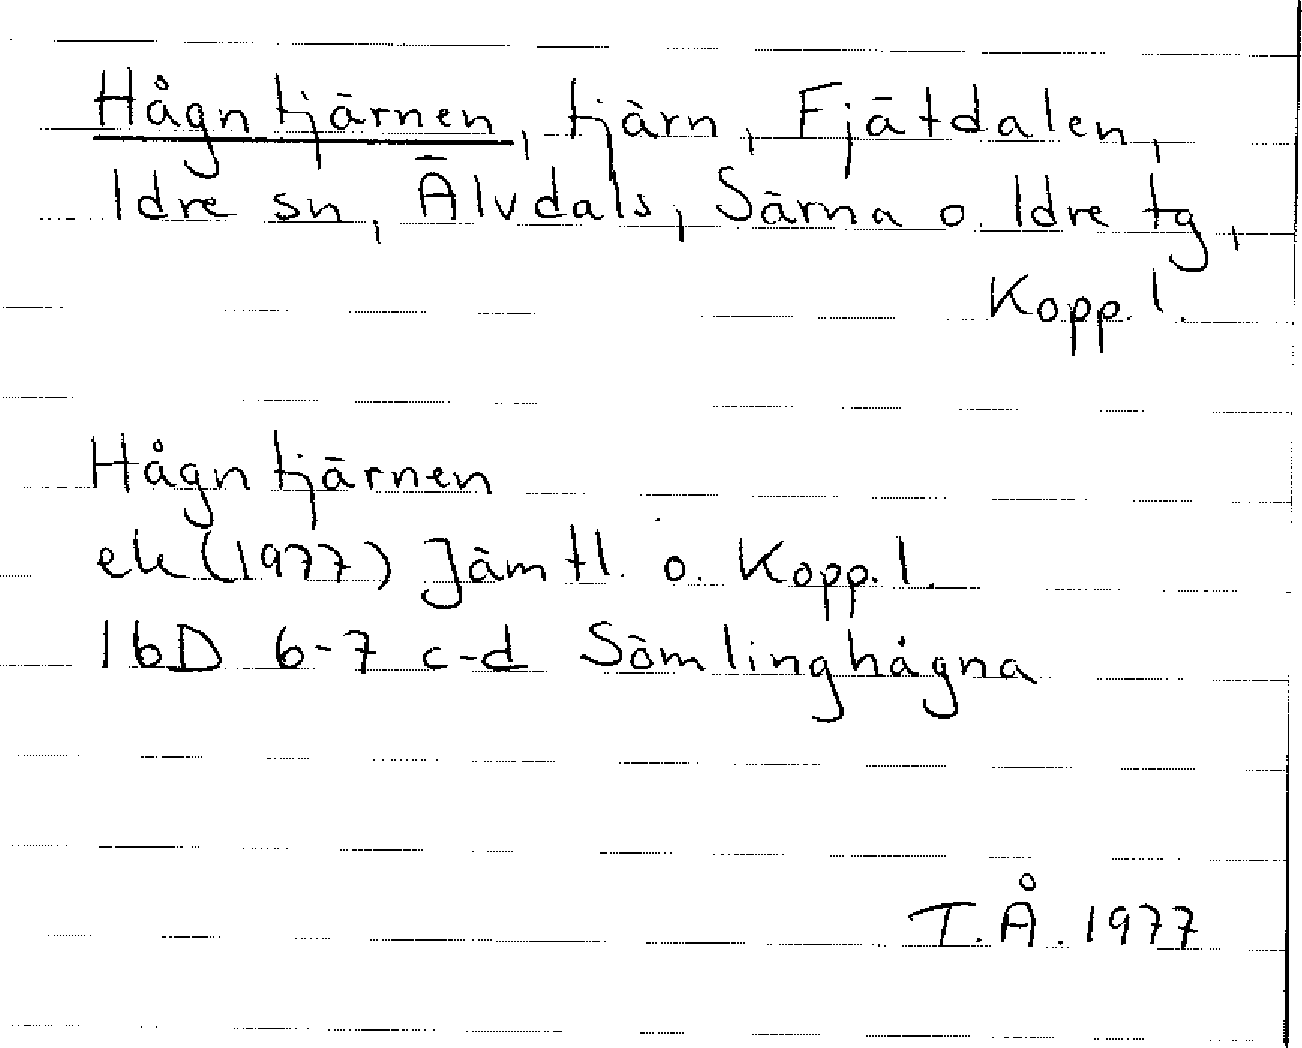 Hågntjärnen, tjärn, Fjätdalen,
Idre sn, Älvdals, Särna o. Idre tg,
Kopp. l.
Hågntjärnen
ek (1977) Jämtl. o. Kopp. l.
16D 6-7 c-d Sömlinghågna
T.Å. 1977